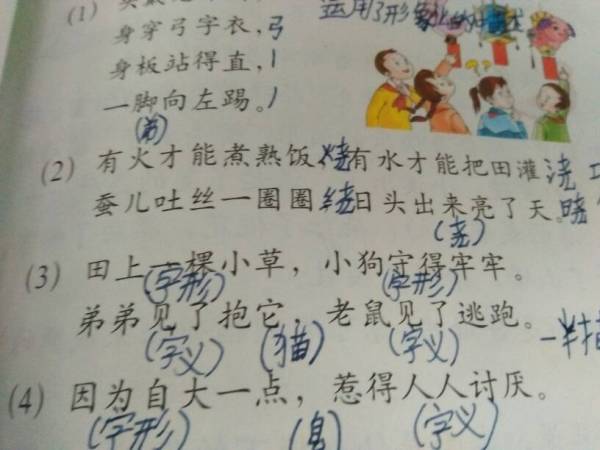 (1)
运用了形象
身穿弓字衣,弓
身板站得直,丨
一脚向左踢。丿
(弟)
(2) 有火才能煮熟饭烧有水才能把田灌浇
蚕儿吐丝一圈圈绕日头出来亮了天。晓
(尧)
(3) 田上一棵小草,小狗守得牢牢。
(字形) (字形)
弟弟见了抱它,老鼠见了逃跑。
(字义) (猫) (字义)
(4) 因为自大一点,惹得人人讨厌。
(字形) (臭) (字义)